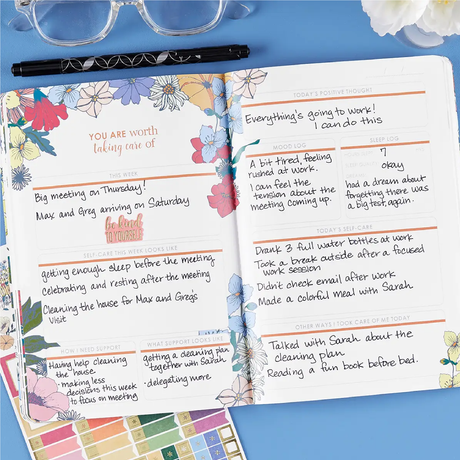 YOU ARE worth
taking care of
THIS WEEK
Big meeting on Thursday!
Max and Greg arriving on Saturday
be kind
TO YOURSELF
SELF-CARE THIS WEEK LOOKS LIKE
getting enough sleep before the meeting
Celebrating and resting after the meeting
Cleaning the house for Max and Greg's
visit
HOW I NEED SUPPORT
Having help cleaning
the house
· making less
decisions this week
to focus on meeting
WHAT SUPPORT LOOKS LIKE
getting a cleaning plan
together with Sarah
· delegating more
TODAY'S POSITIVE THOUGHT
Everything's going to work!
I can do this
MOOD LOG
A bit tired, feeling
rushed at work.
I can feel the
tension about the
meeting coming up.
SLEEP LOG
7
okay
had a dream about
forgetting there was
a big test, again.
TODAY'S SELF-CARE
Drank 3 full water bottles at work
Took a break outside after a focused
work session
Didn't check email after work
Made a colorful meal with Sarah
OTHER WAYS I TOOK CARE OF ME TODAY
Talked with Sarah about the
cleaning plan
Reading a fun book before bed.